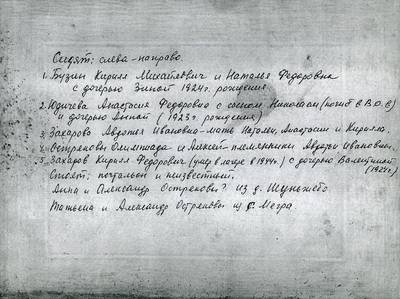 Сидят: слева-направо
1. Бузин Кирилл Михайлович и Наталья Федоровна
с дочерью Зиной 1924г. рождения
2. Юдичева Анастасия Федоровна с сыном Николаем (погиб в В.О.В)
и дочерью Анной (1923г. рождения)
3. Захарова Авдотья Ивановна-мать Натальи, Анастасии и Кирилла.
4. Остряковы Олимпиада и Алексей-племянники Авдотьи Ивановны.
5. Захаров Кирилл Федорович (умер в 1944г.) с дочерью Валентиной
(1924г.)
Стоят: почтальон и неизвестный.
Анна и Александр Остряковы? из д.
Татьяна и Александр Остряковы из с. Мегра